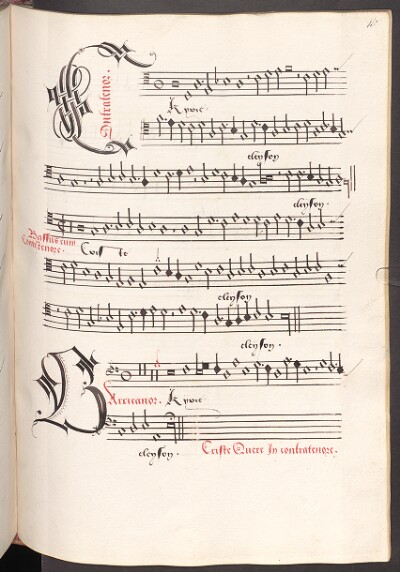 Contratenor.
Kyrie
eleyson
eleyson.
Bassus cum
Contratenore.
Criste
eleyson
eleyson.
Barricanor. Kyrie
eleyson. Criste Quere In contratenore.